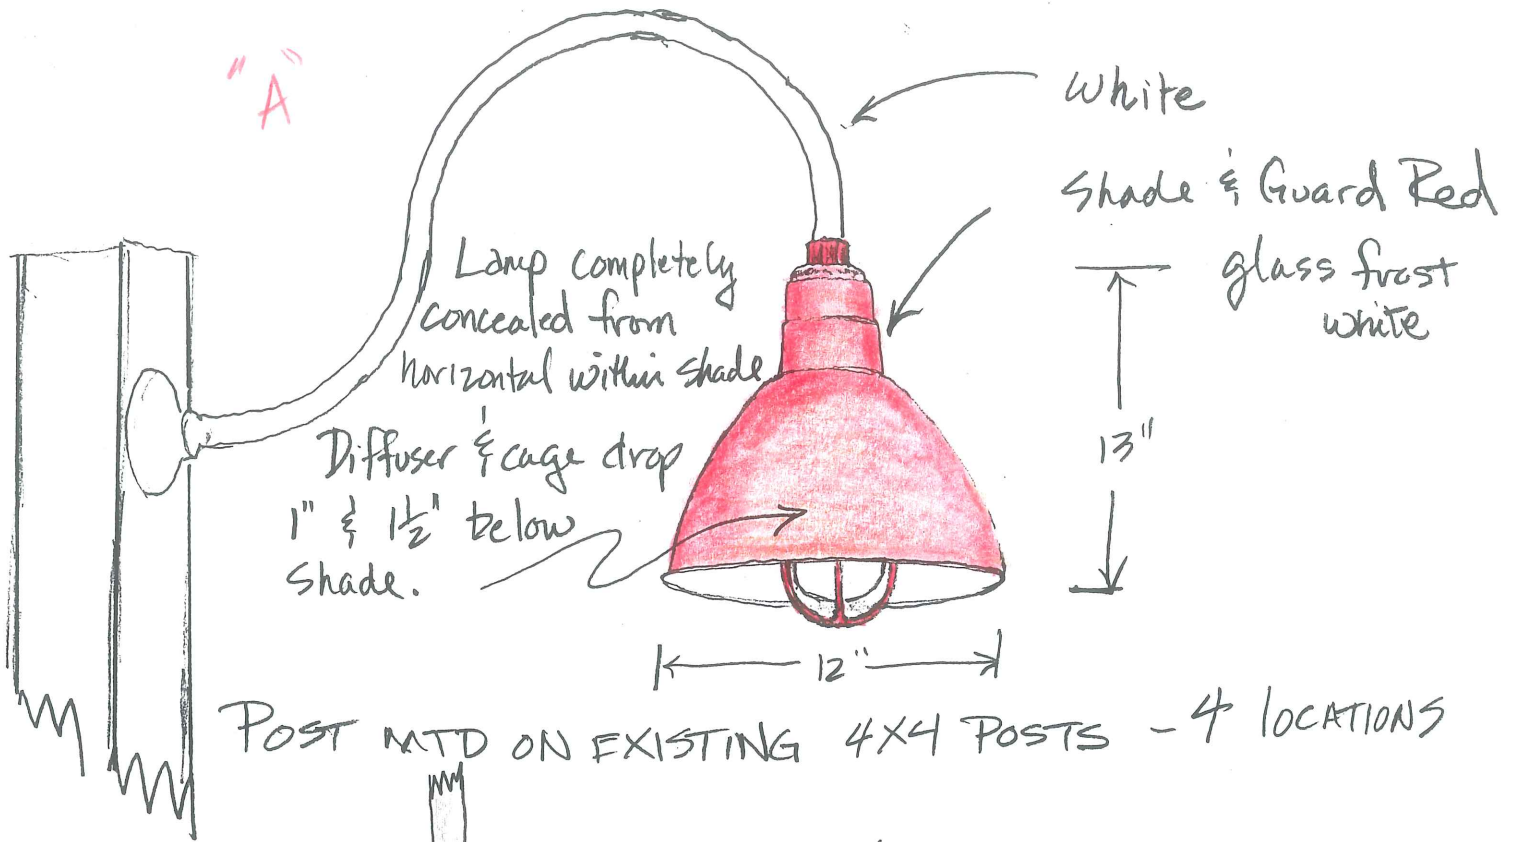 "A"
White
Shade & Guard Red
glass frost
white
Lamp completely
concealed from
horizontal within shade
&
Diffuser & cage drop
1" & 1½" below
shade.
13"
12"
POST MTD ON EXISTING 4X4 POSTS - 4 LOCATIONS